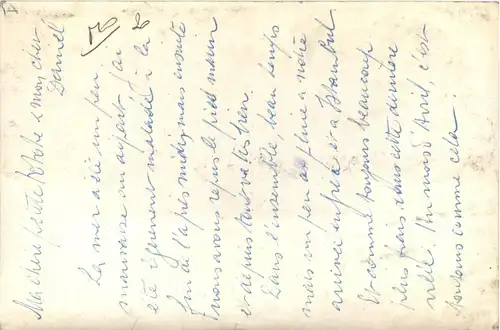 Ma chère petite Totote & mon cher
Daniel
La mer a été un peu
mauvaise au départ. J'ai
été légèrement malade à la
fin de l'après midi, mais ensuite
nous avons repris le pied marin
et depuis tout va très bien.
Dans l'ensemble, beau temps
mais un peu de pluie à notre
arrivée au Pirée et à Istambul.
Et comme toujours beaucoup
plus frais dans cette dernière
ville. Au mois d'Avril c'est
toujours comme cela.